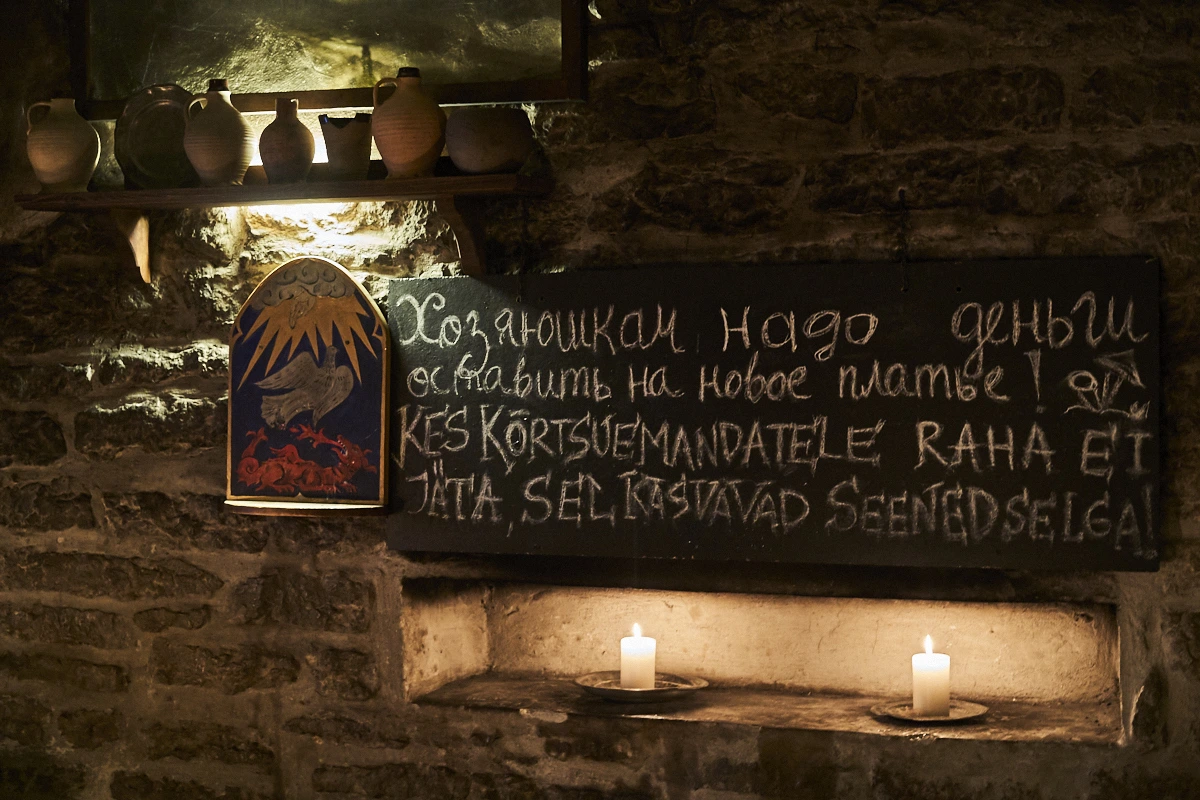 Хозяюшкам надо деньги
оставить на новое платье!
KES KÕRTSUEMANDATELE RAHA EI
JÄTA, SEL KASVAVAD SEENED SELGA!